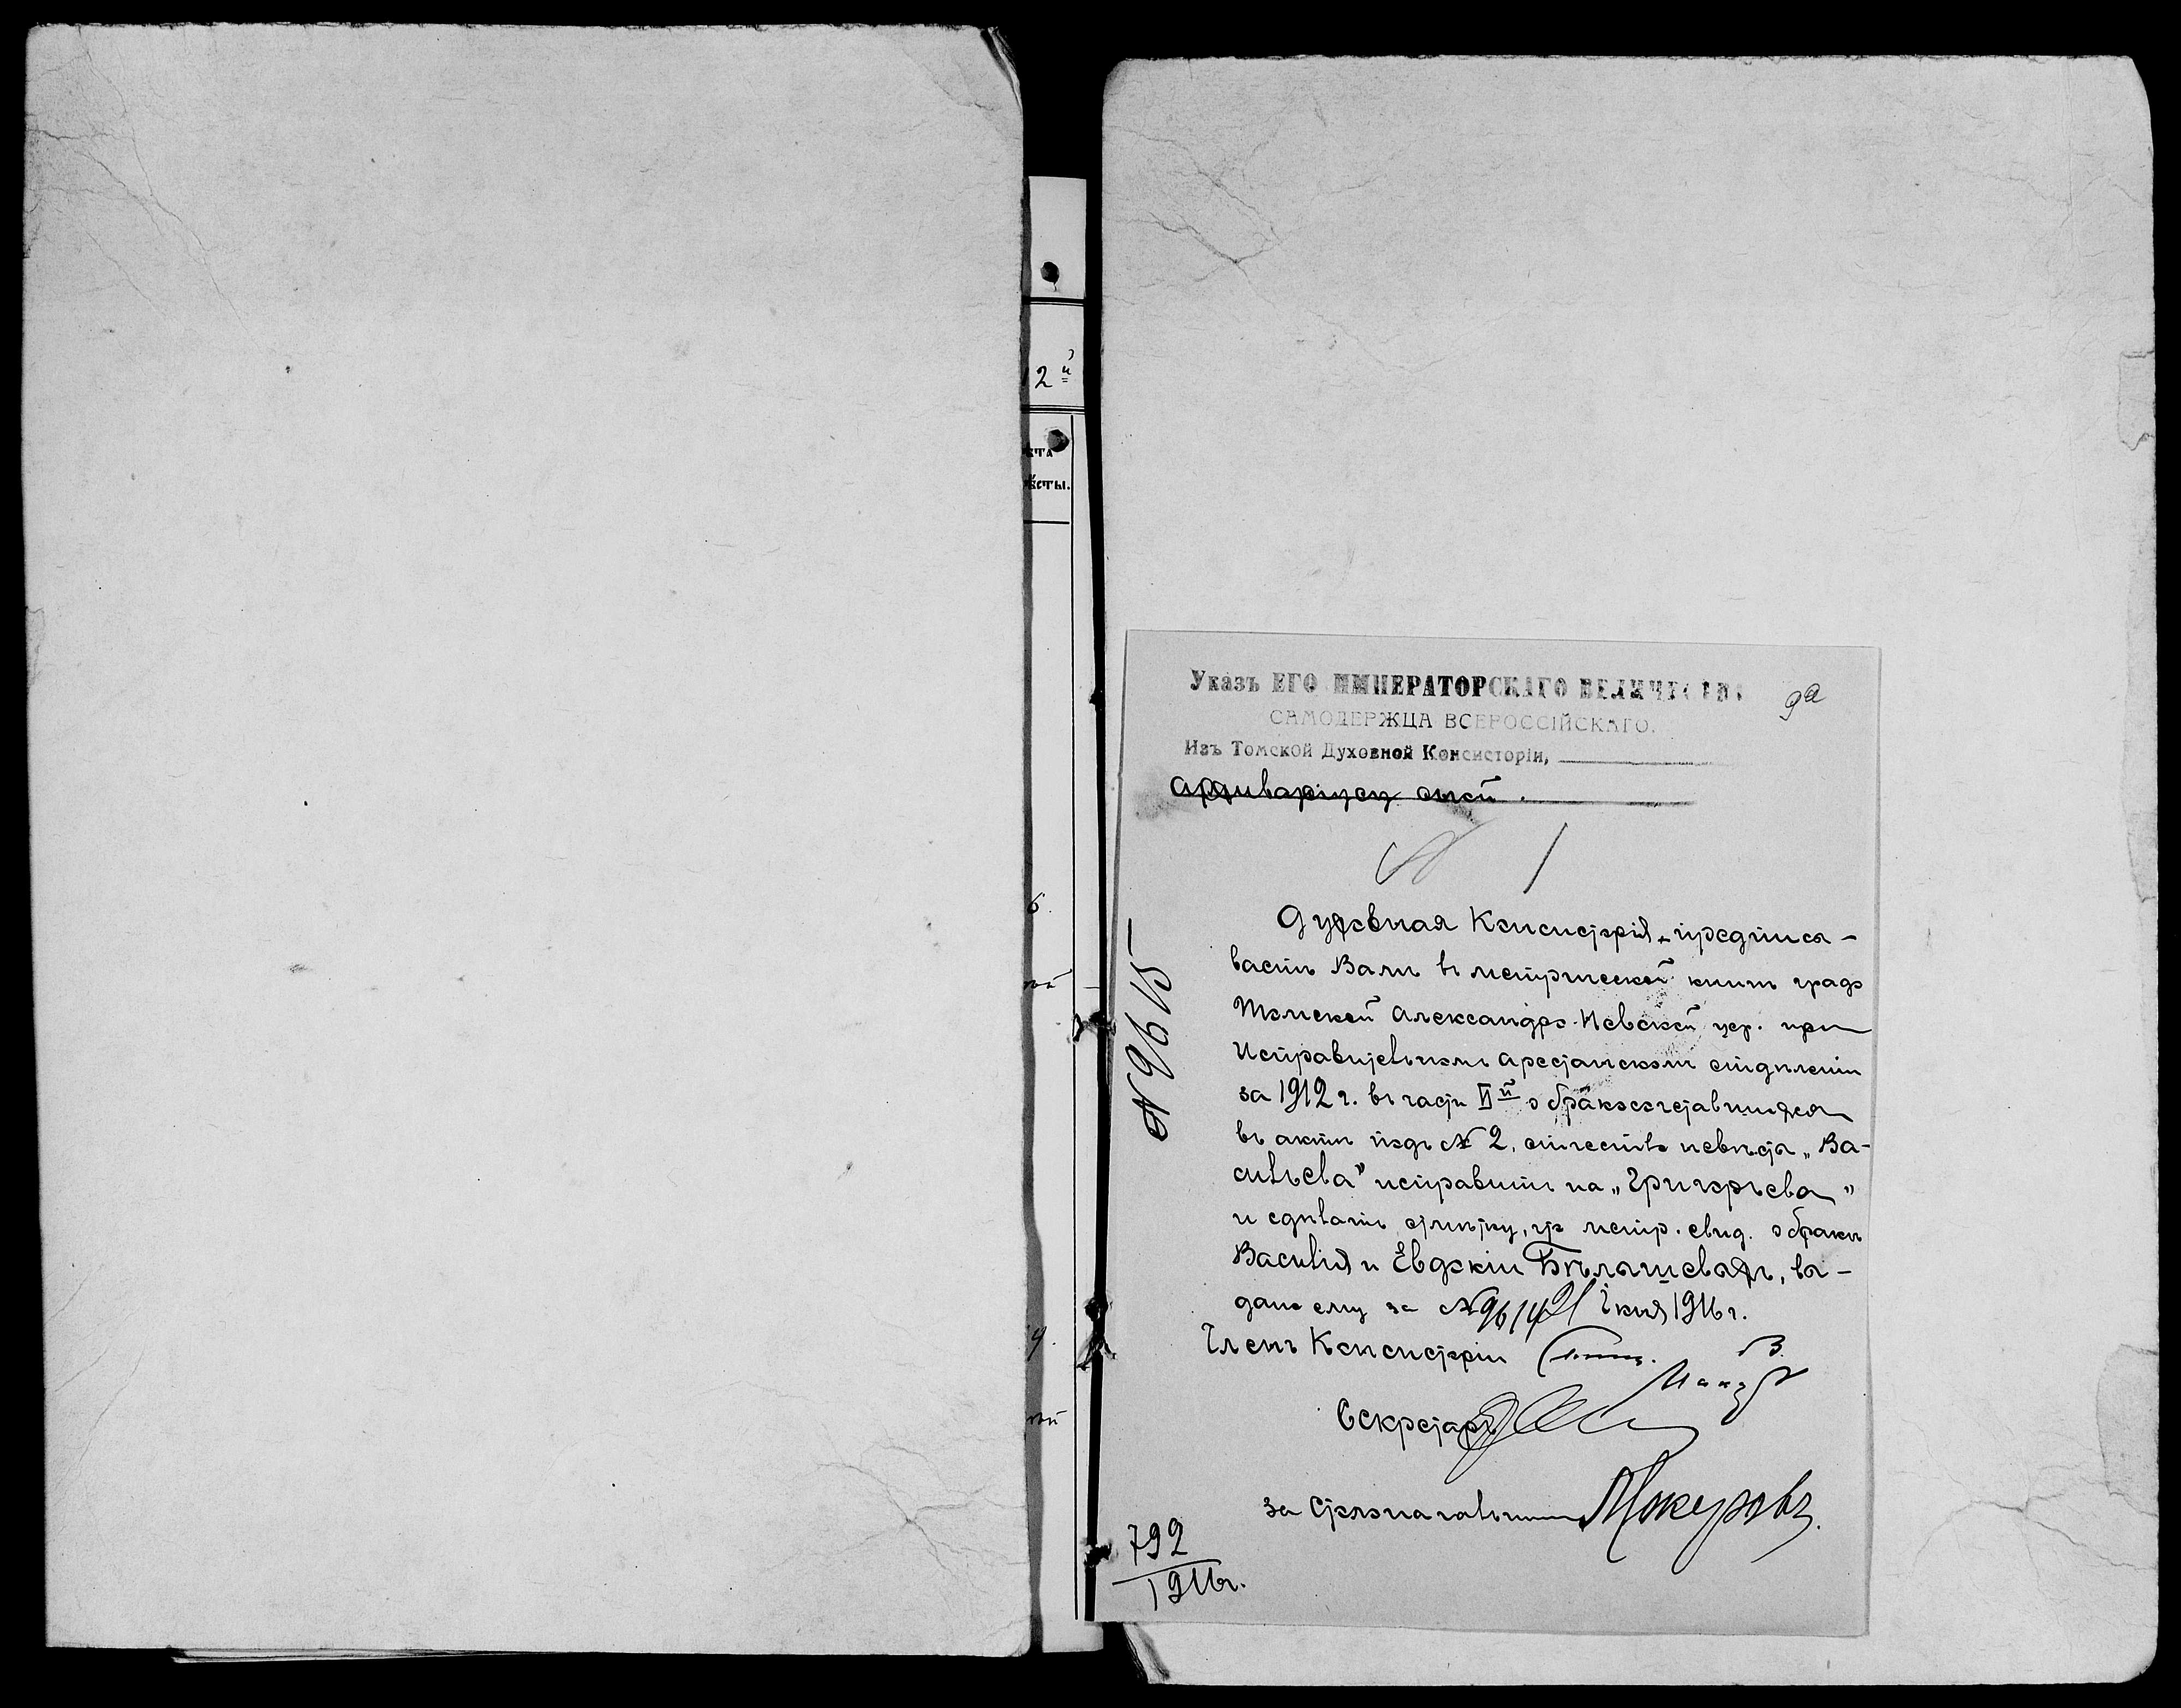 12й
ста
ѣсты.
6.
Указъ ЕГО ИМПЕРАТОРСКАГО ВЕЛИЧЕСТВА
САМОДЕРЖЦА ВСЕРОССІЙСКАГО.
Изъ Томской Духовной Консисторіи,
Архиваріусу оной.
№ 9615
Духовная Консисторія предписы-
ваетъ Вамъ въ метрической книгѣ градо
Томской Александро-Невской цер. при
Исправительномъ арестанскомъ отдѣленіи
за 1912 г. въ части IIй о бракосочетавшихся
въ актѣ подъ № 2, отчество невѣсты „Ва-
сильева" исправить на „Григорьева"
и сдѣлать отмѣтку, что метр. свид. о бракѣ
Василія и Евдокіи Бѣлашевыхъ, вы-
дано ему за № 9614 21 Іюня 1916 г.
Членъ Консисторіи
Секретарь
за Столоначальника
792
1916 г.